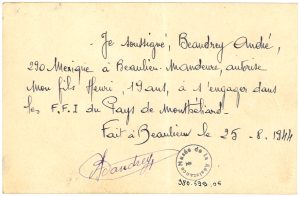 Je soussigné, Beaudrey André,
290 Mexique à Beaulieu-Mandeure, autorise
mon fils Henri, 19 ans, à s'engager dans
les F.F.I du Pays de Montbéliard.
Fait à Beaulieu le 25-8.1944
Beaudrey
Musée de la Résistance
980.699.06